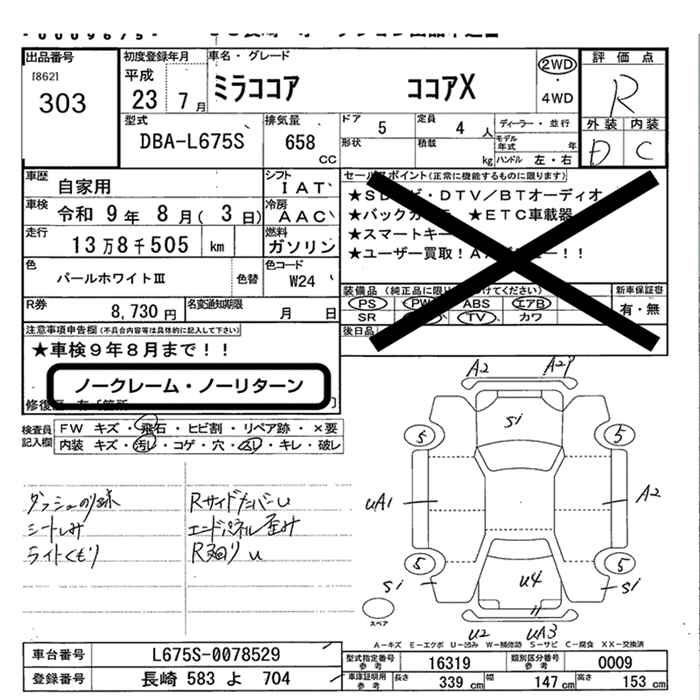 出品番号
[862]
303
初度登録年月
平成
23 7月
車名・グレード
ミラココア ココアX
2WD
・
4WD
評価点
R
外装 内装
D C
型式
DBA-L675S
排気量
658 CC
ドア
5
定員
4 人
ディーラー・並行
形状
積載
kg
モデル年式 年
ハンドル 左・右
車歴
自家用
シフト
IAT
車検
令和 9年 8月( 3日)
冷房
AAC
走行
13万8千505 km
燃料
ガソリン
色
パールホワイトⅢ
色替
色コード
W24
R券
8,730円
名変通知期限
月 日
セールスポイント(正常に機能するものに限ります)
・DTV/BTオーディオ
★バックカ ★ETC車載器
★スマートキー
★ユーザー買取!
!!
装備品(純正品に限り てください)
PS PW ABS エアB
SR TV カワ
新車保証書
有・無
後日品
注意事項申告欄(不具合内容等は具体的に記入して下さい)
★車検9年8月まで!!
ノークレーム・ノーリターン
検査員
記入欄
FW キズ・飛石・ヒビ割・リペア跡・×要
内装 キズ・汚レ・コゲ・穴・スレ・キレ・破レ
ダッシュのり跡
シートしみ
ライトくもり
Rサイドカバーu
エンドパネル歪み
R廻りu
A2 A2P
Si
5 5
uA1 A2
5 5
Si Si
u4
u2 uA3
スペア
A-キズ E-エクボ U-凹み W-補修跡 S-サビ C-腐食 XX-交換済
車台番号
L675S-0078529
登録番号
長崎 583 よ 704
型式指定番号
参考
16319
類別区分番号
参考
0009
車庫証明用
参考
長さ
339 cm
幅
147 cm
高さ
153 cm